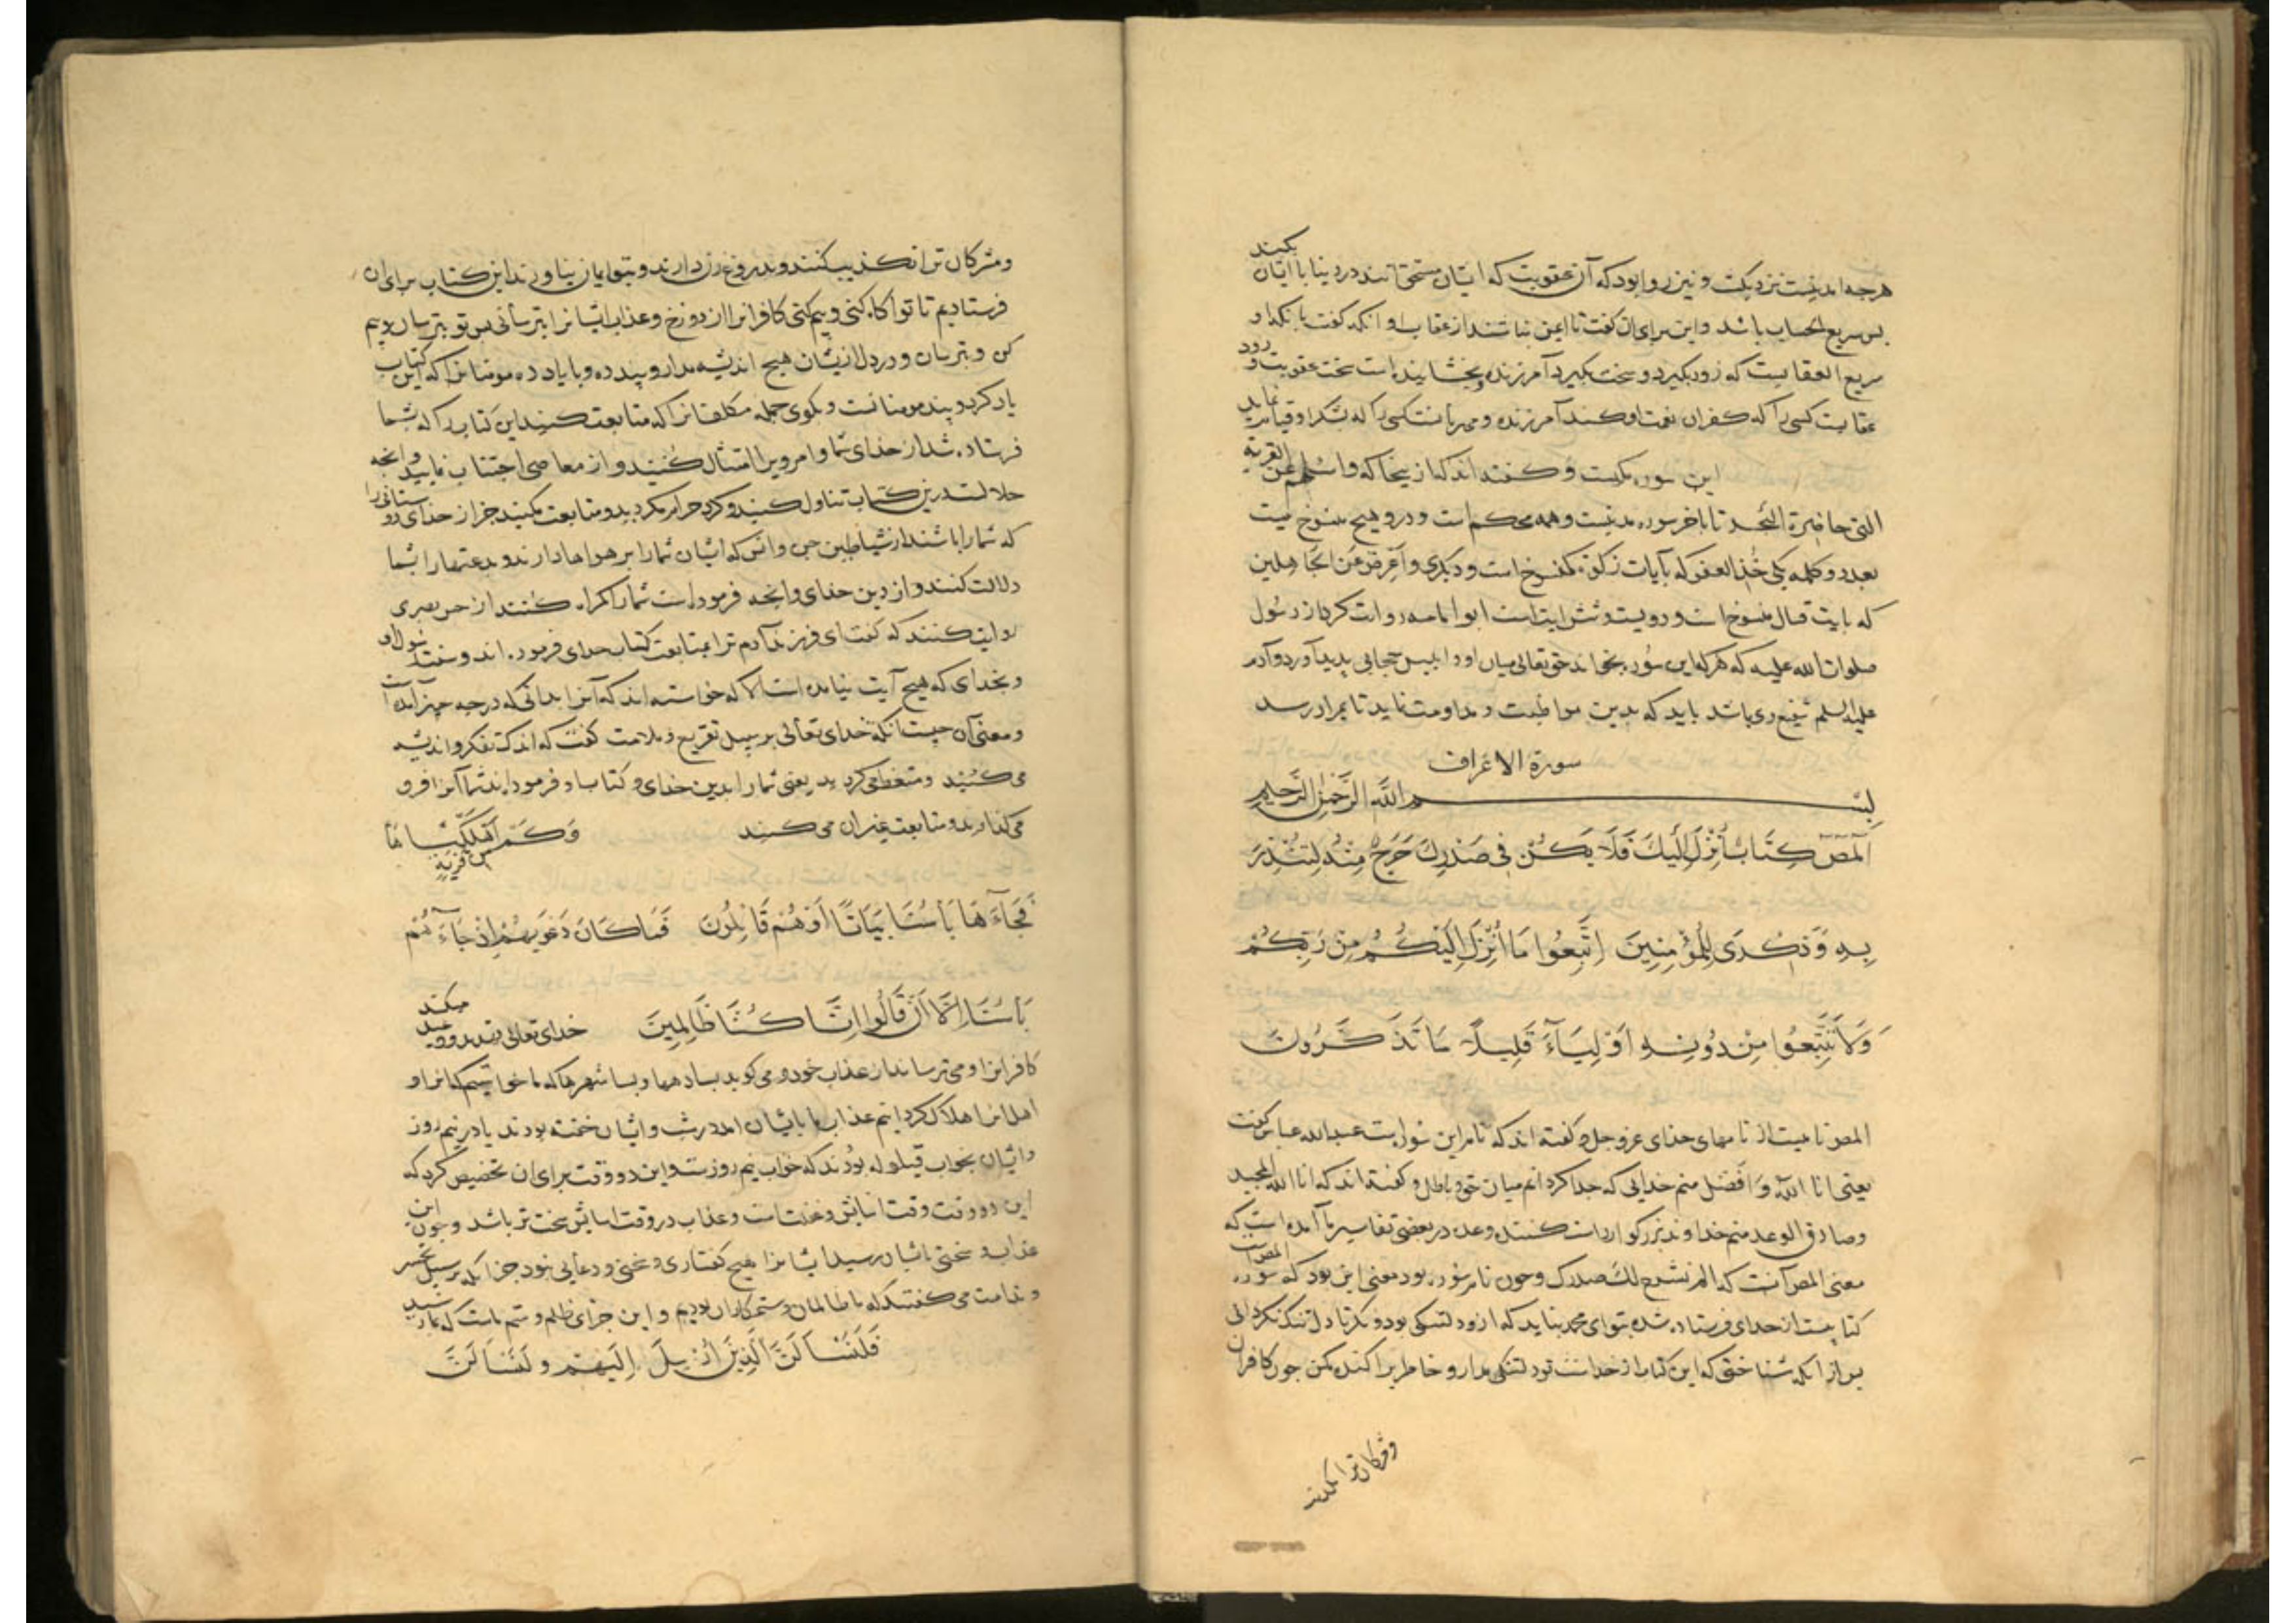 هرجه امدنیست نزدیکست و نیز روا بود که آن عقوبت که ایشان مستحق آنند در دنیا با ایشان بکند
بس سریع الحساب باشد و این برای آن گفت تا ایمن نباشند از عقاب او و انکه گفت بانکه او
سریع العقابست که زود بکیرد و سخت بکیرد آمرزنده و بخشاینده است سخت عقوبت و زود
عقابست کسی را که کفران نعمت او کند آمرزنده و مهربانست کسی را که شکر او قیام نماید
این سوره مکیست و گفته اند که از ینجا که واسئلهم عن القریة
التی حاضرة البحر تا باخر سوره مدنیست و همه محکم است و درو هیچ منسوخ نیست
بعد دو کلمه یکی خذ العفو که بآیات زکوة منسوخ است و دیکری و اعرض عن الجاهلین
که بایت قتال منسوخ است و دویست و شش ایت است ابو امامه روایت کرد از رسول
صلوات الله علیه که هر که این سوره بخواند حق تعالی میان او و ابلیس حجابی پدید آورد و آدم
علیه السلم شفیع وی باشد باید که بدین مواظبت و مداومت نماید تا بمراد رسد
سورة الاعراف
بسم الله الرحمن الرحیم
المص كِتَابٌ أُنْزِلَ إِلَيْكَ فَلَا يَكُنْ فِي صَدْرِكَ حَرَجٌ مِنْهُ لِتُنْذِرَ
بِهِ وَذِكْرَى لِلْمُؤْمِنِينَ اِتَّبِعُوا مَا أُنْزِلَ إِلَيْكُمْ مِنْ رَبِّكُمْ
وَلَا تَتَّبِعُوا مِنْ دُونِهِ أَوْلِيَآءَ قَلِيلًا مَا تَذَكَّرُونَ
المص نامیست از نامهای خدای عز و جل و گفته اند که نام این سوره است عبدالله عباس گفت
یعنی انا الله و افضل منم خدایی که جدا کردانم میان حق و باطل و گفته اند که انا الله المجید
و صادق الوعد منم خداوند بزرکوار راست کننده وعده در بعضی تفاسیر ما آمده است که
معنی المص آنست که الم نشرح لک صدرک و چون نام سوره بود معنی این بود که سوره المص
کتابیست از خدای فرستاده شده بتو ای محمد نباید که از و دلتنکی بود و نکر تا دل تنک نکردانی
بس از انکه شناختی که این کتاب از خداست تو دلتنکی مدار و خاطر براکنده مکن جون کافران
ومشرکان ترا تکذیب
ومشرکان ترا تکذیب کنند و بدروغ زن دارند و بتو ایمان نیاورند این کتاب برای آن
فرستادیم تا تو آکاه کنی و بیم کنی کافران را از دوزخ و عذاب ایشانرا بترسانی بس تو بترسان و بیم
کن و بترسان و در دل ازیشان هیچ اندیشه مدار و پند ده و با یاد ده مومنانرا که این کتاب
یاد کرد و پند مومنانست و بکوی جمله مکلفانرا که متابعت کنند این کتاب را که بشما
فرستاده شد از خدای شما و امر ویرا امتثال کنید و از معاصی اجتناب نمایید و انجه
حلالست درین کتاب تناول کنید و کرد حرام مکردید و متابعت مکنید جز از خدای دوستانی را
که شما را باشند از شیاطین جن و انس که ایشان شما را بر هوا ها دارند و بدعتها را بشما
دلالت کنند و از دین خدای و انجه فرموده است شما را کمراه کنند از حسن بصری
روایت کنند که گفت ای فرزند آدم ترا بمتابعت کتاب خدای فرموده اند و سنت رسول او
و بخدای که هیچ آیت نیامده است الا که خواسته اند که آنرا بدانی که در جه جیز آمده است
و معنی آن جیست انکه خدای تعالی بر سبیل تقریع و ملامت گفت که اندک تفکر و اندیشه
می کنید و متعظ می کردید یعنی شما را بدین خدای و کتاب او فرموده اند شما آنرا فرو
می کذارید و متابعت غیر آن می کنید وَكَمْ مِنْ قَرْيَةٍ أَهْلَكْنَاهَا
فَجَآءَهَا بَأْسُنَا بَيَاتًا أَوْ هُمْ قَائِلُونَ فَمَا كَانَ دَعْوَيهُمْ إِذْ جَآءَهُمْ
بَأْسُنَا إِلَّا أَنْ قَالُوا إِنَّا كُنَّا ظَالِمِينَ خدای تعالی تهدید و وعید میکند
کافرانرا و می ترساند از عذاب خود و می کوید بسا دهها و بسا شهرها که ما خواستیم که آنرا و
اهل آنرا هلاک کردانیم عذاب ما بایشان امد در شب و ایشان خفته بودند یا در نیم روز
و ایشان بخواب قیلوله بودند که خواب نیم روزست و این دو وقت برای ان تخصیص کرد که
این دو وقت وقت اسایش و غفلت است و عذاب در وقت اسایش سخت تر باشد و جون این
عذاب و سختی بایشان رسید ایشانرا هیچ کفتاری و سخنی و دعایی نبود جز انکه بر سبیل تحسر
و ندامت می گفتند که ما ظالمان و ستمکاران بودیم و این جزای ظلم و ستم ماست که بما رسید
فَلَنَسْأَلَنَّ الَّذِينَ أُرْسِلَ إِلَيْهِمْ وَلَنَسْأَلَنَّ